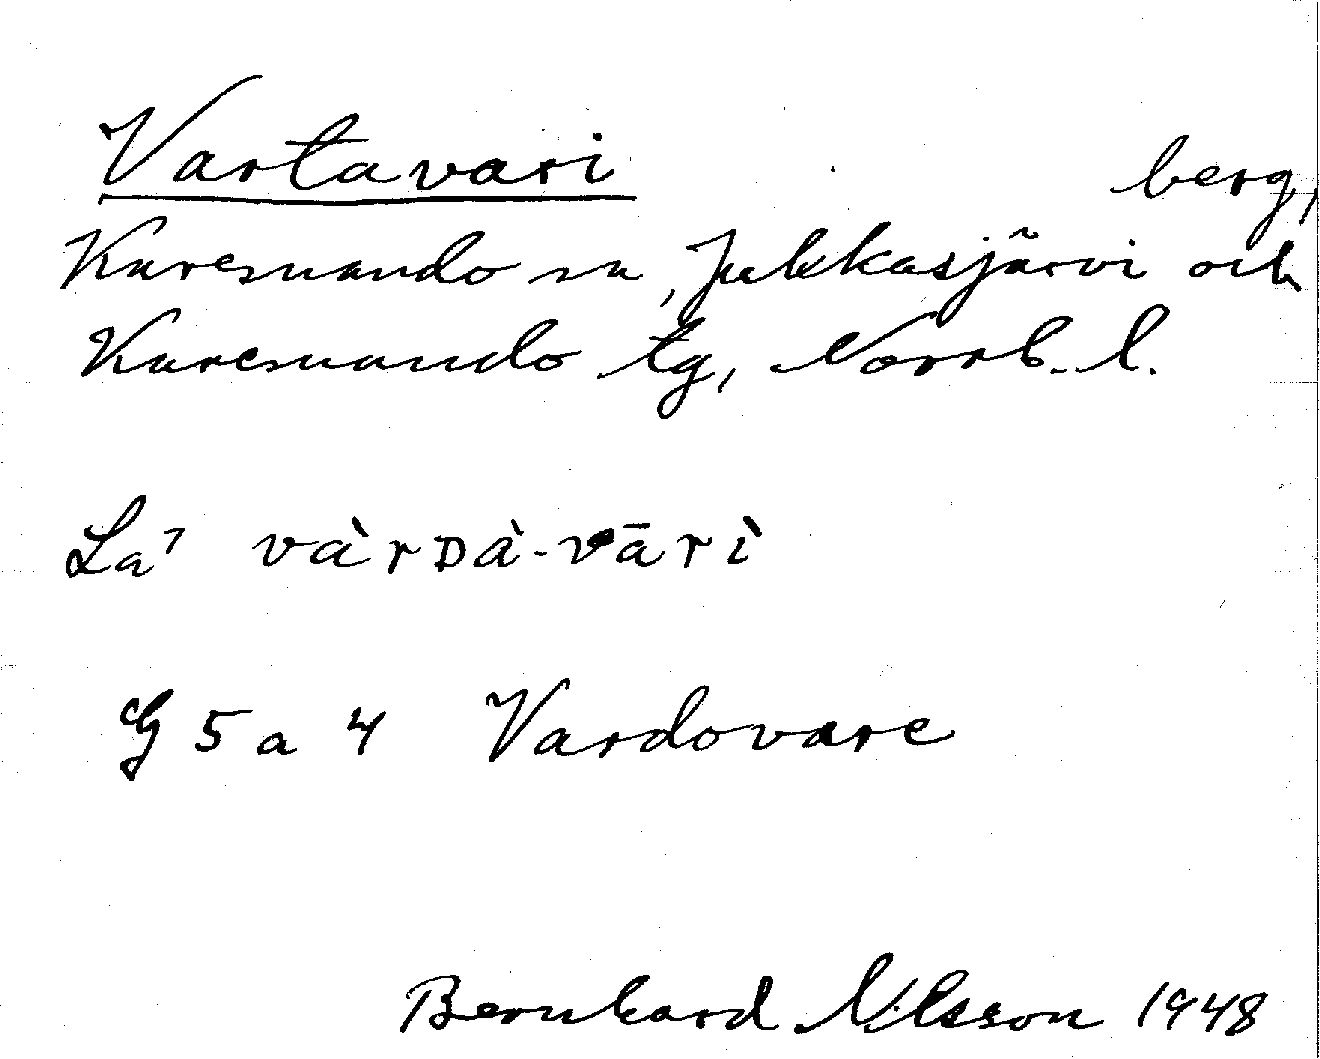 Vartavari berg,
Karesuando sn, Jukkasjärvi och
Karesuando tg, Norrb. l.
La⁷ vàrᴅà-vāri̇̀
G 5 a 4 Vardovare
Bernhard Nilsson 1948